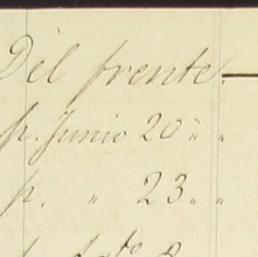 Del frente.
p. Junio 20 " "
p. " 23 " "